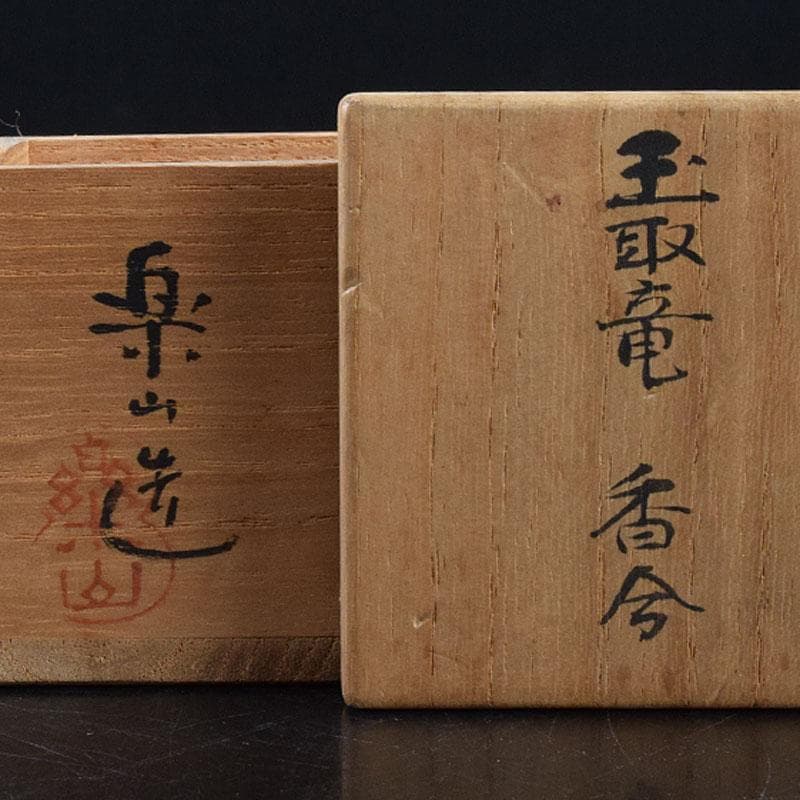 玉取竜 香合
楽山造
樂山